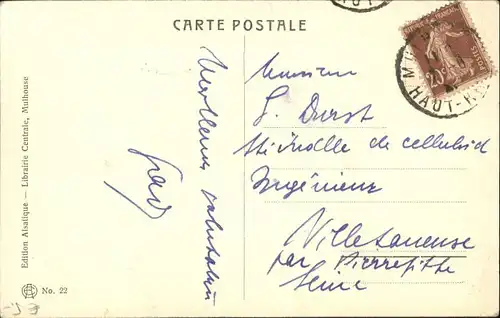 CARTE POSTALE
Edition Alsatique — Librairie Centrale, Mulhouse
No. 22
Meilleures salutations
Monsieur
Durst
de celluloid
Ingénieur
Villetaneuse
par Pierrefitte
Seine
20c
HAUT-R